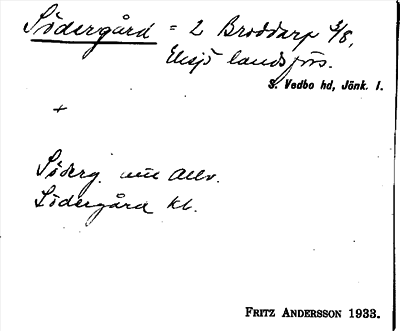 Södergård = 2 Broddarp 3/8,
Eksjö landsförs.
S. Vedbo hd, Jönk. l.
+
Söderg. Allv.
Södergård kl.
FRITZ ANDERSSON 1933.